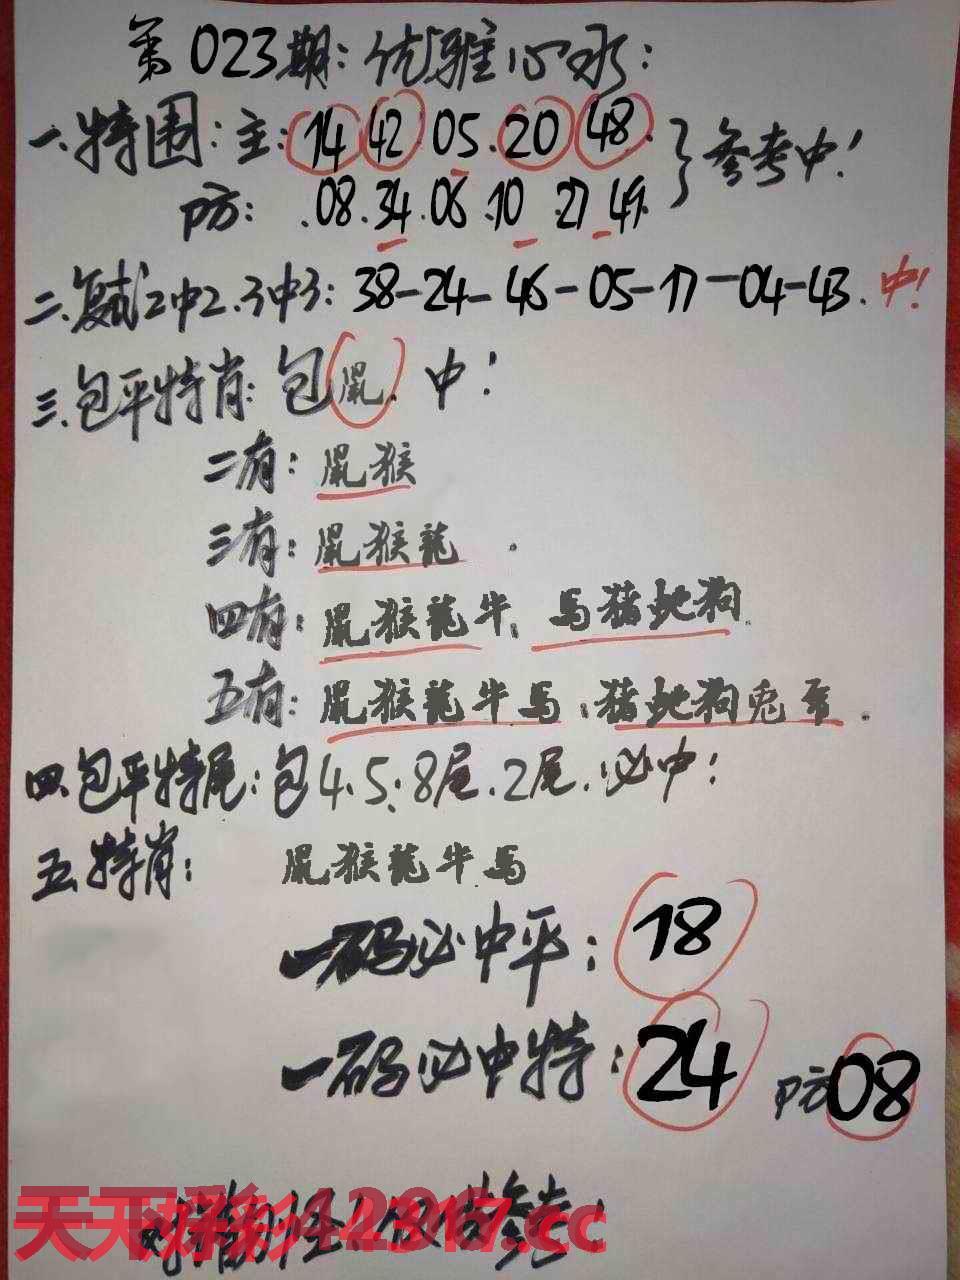 第023期:优雅心水:
一.特围:主:14 42 05.20 48.
防:.08.34.06.10.27 49.
参考中!
二.复式2中2.3中3:38-24-46-05-17-04-43.中!
三.包平特肖:包鼠.中!
二有:鼠猴
三有:鼠猴龍.
四有:鼠猴龍牛.馬猪蛇狗.
五有:鼠猴龍牛馬.猪蛇狗兎.
四.包平特尾:包4.5.8尾.2尾.必中!
五.特肖:鼠猴龍牛馬
一码必中平:18
一码必中特:24 防08
天下彩 .cc